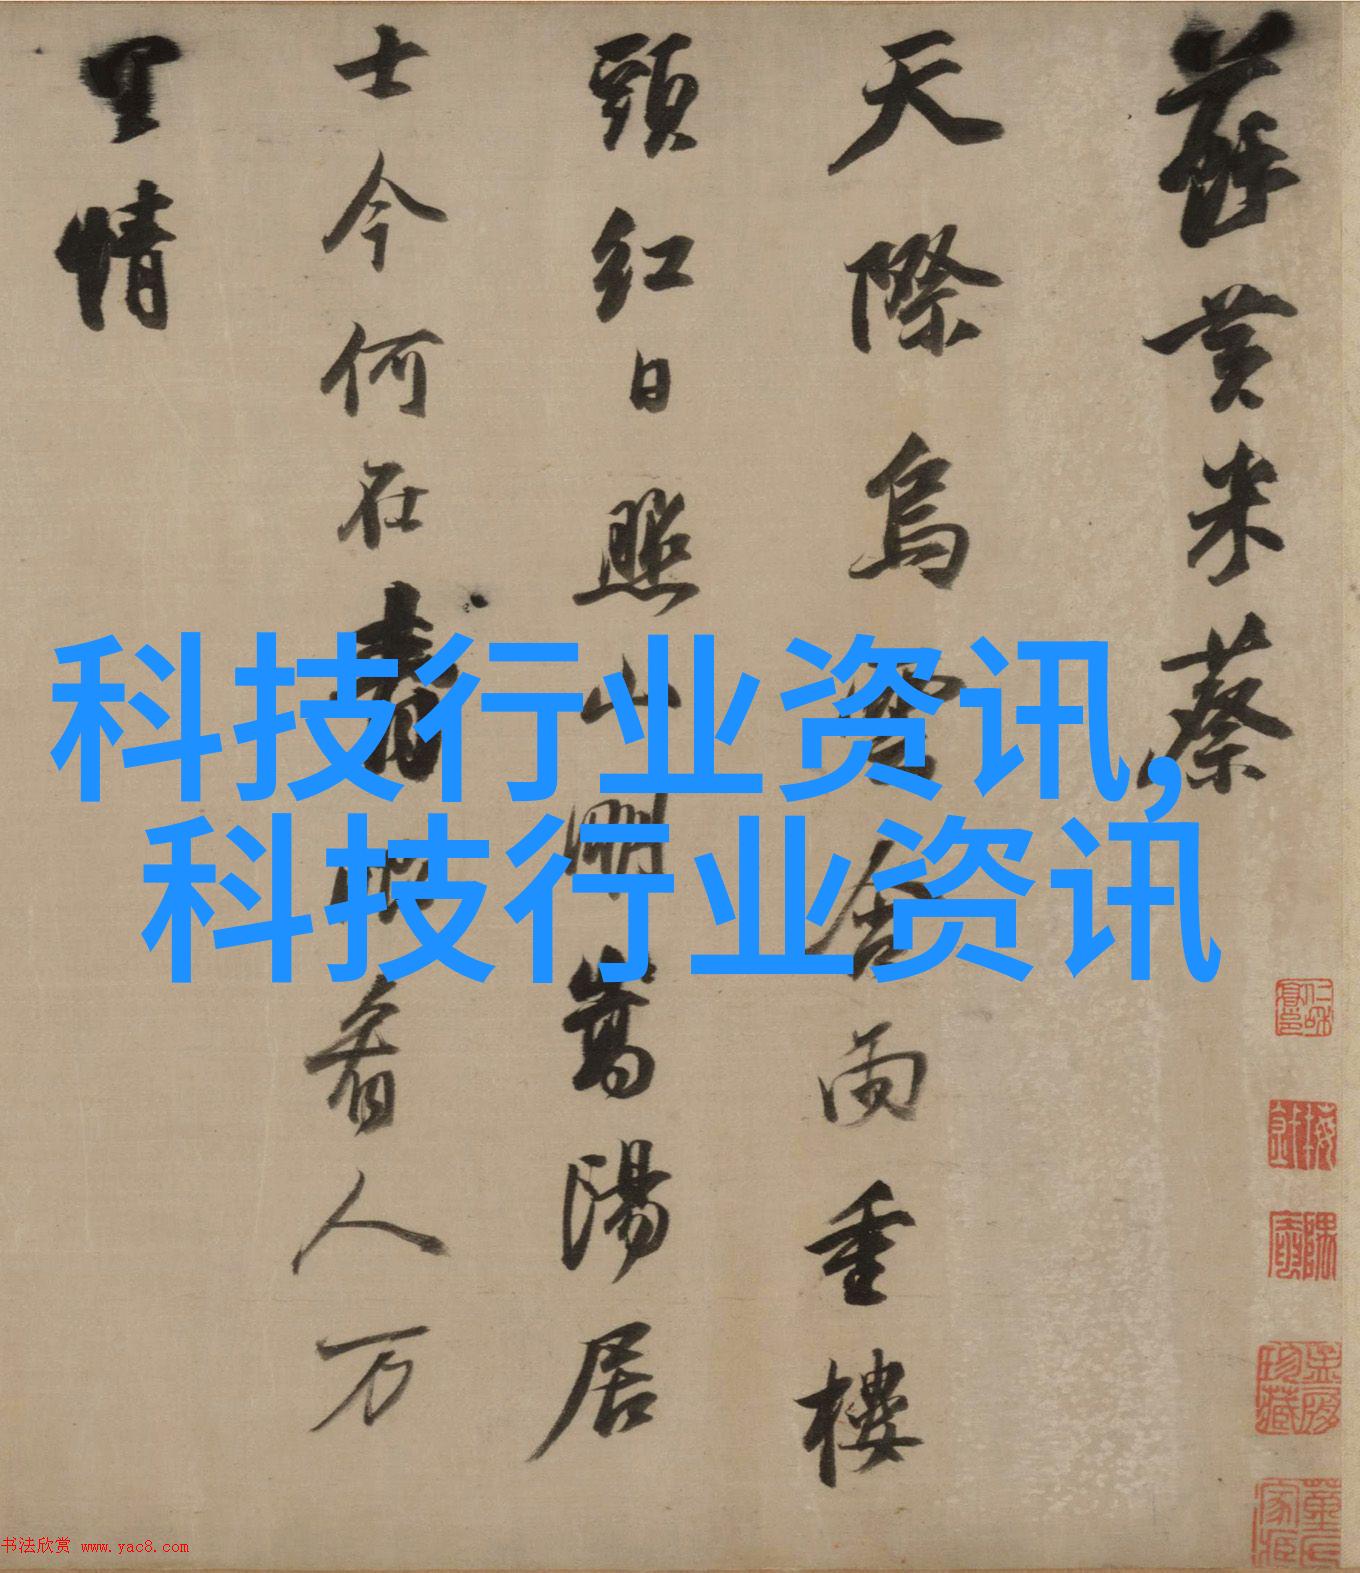 蘇黄米蔡
天際烏雲含雨重樓
頭紅日照山明嵩陽居
士今何在青眼看人万
里情
科技行业资讯,
科技行业资讯
书法欣赏 www.yac8.com